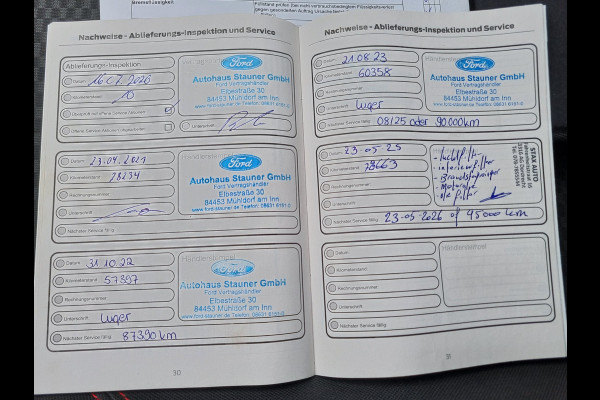 Bremsflüssigkeit
Nachweise - Ablieferungs-Inspektion und Service
Ablieferungs-Inspektion
Datum 16.07.2020
Kilometerstand 10
Unterschrift
Ford
Autohaus Stauner GmbH
Ford Vertragshändler
Elbestraße 30
84453 Mühldorf am Inn
Datum 23.04.2021
Kilometerstand 28234
Rechnungsnummer
Unterschrift
Nächster Service fällig
Ford
Autohaus Stauner GmbH
Ford Vertragshändler
Elbestraße 30
84453 Mühldorf am Inn
www.ford-stauner.de Telefon: 08631
Datum 31.10.22
Kilometerstand 57397
Rechnungsnummer
Unterschrift Luger
Nächster Service fällig 87390 km
Händlerstempel
Ford
Autohaus Stauner GmbH
Ford Vertragshändler
Elbestraße 30
84453 Mühldorf am Inn
30
Nachweise - Ablieferungs-Inspektion und Service
Datum 21.08.23
Kilometerstand 60358
Rechnungsnummer
Unterschrift Luger
Nächster Service fällig 08/25 oder 90.000km
Ford
Autohaus Stauner GmbH
Ford Vertragshändler
Elbestraße 30
84453 Mühldorf am Inn
Datum 23-05-25
Kilometerstand 78663
Rechnungsnummer
Unterschrift
Nächster Service fällig 23-05-2026 of 95000 km
- luchtfilter
- interieurfilter
- Brandstoffilter
- Motorolie
- oliefilter
STAX AUTO
Datum
Kilometerstand
Rechnungsnummer
Unterschrift
Nächster Service fällig
Händlerstempel
31